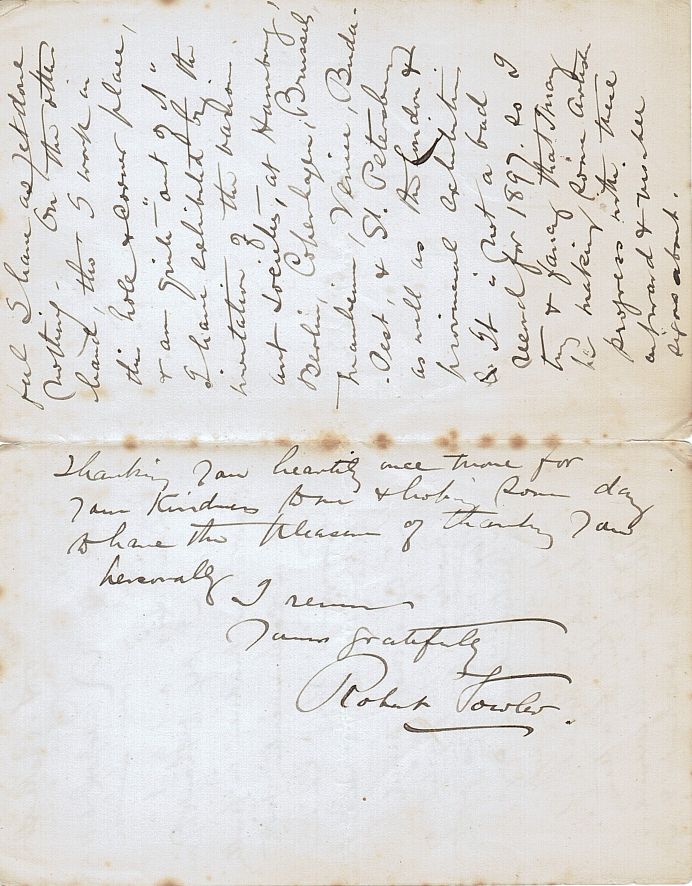 feel I have as yet done
nothing – On the other
hand, tho' I work in
this hole & corner place,
& am quite "out of it"
I have exhibited by the
invitation of the various
art Societies, at Hamburg,
Berlin, Copenhagen, Brussels,
Mannheim, Venice, Buda-
-Pest, & St. Petersburg
as well as the London &
provincial exhibitions
& It is not a bad
record for 1897. so I
try & fancy that I may
be making some artistic
progress with these
outward & visible
signs about.
Thanking you heartily once more for
your Kindness to me & hoping some day
to have the pleasure of thanking you
personally
I remain
Yours gratefully
Robert Fowler.